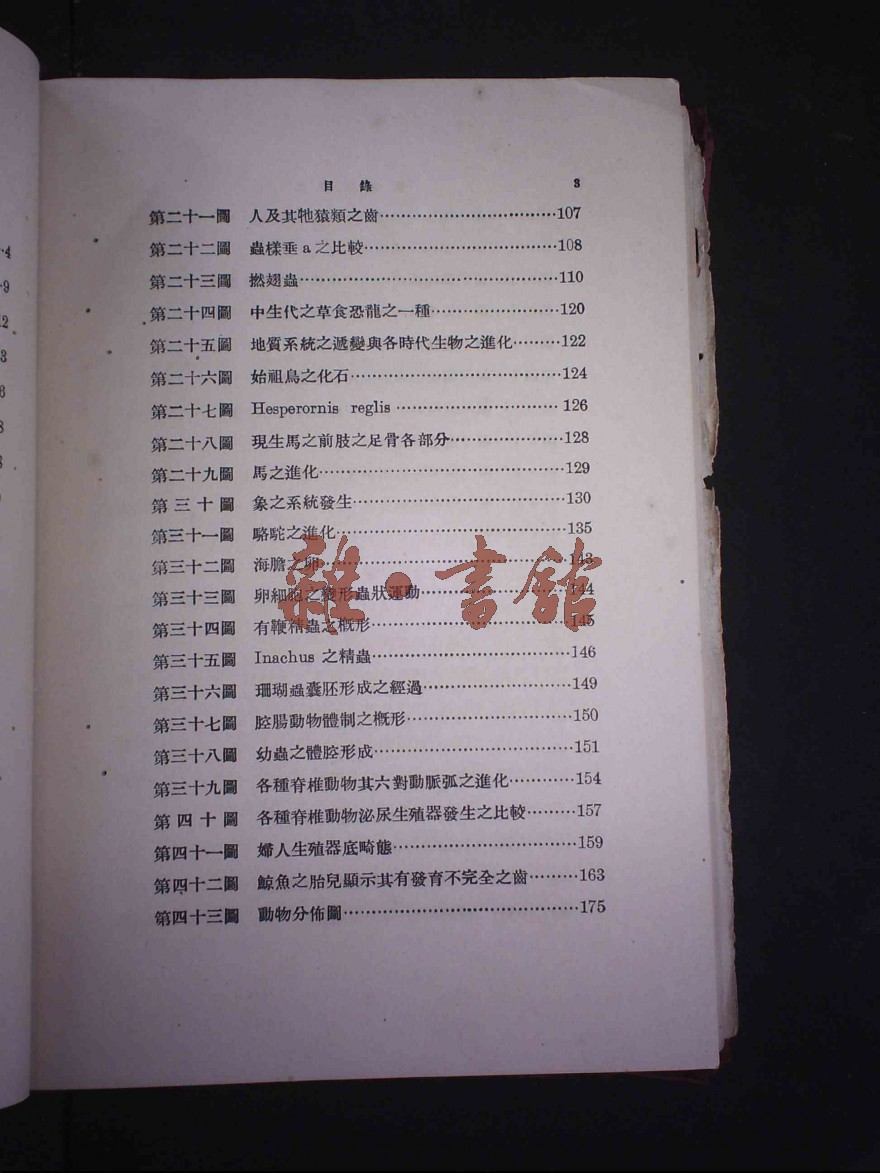 目錄 3
第二十一圖 人及其牠猿類之齒……………………………107
第二十二圖 蟲樣垂a之比較………………………………108
第二十三圖 撚翅蟲…………………………………………110
第二十四圖 中生代之草食恐龍之一種……………………120
第二十五圖 地質系統之遞變與各時代生物之進化………122
第二十六圖 始祖鳥之化石…………………………………124
第二十七圖 Hesperornis reglis …………………………126
第二十八圖 現生馬之前肢之足骨各部分…………………128
第二十九圖 馬之進化………………………………………129
第三十圖 象之系統發生……………………………………130
第三十一圖 駱駝之進化……………………………………135
第三十二圖 海膽之卵………………………………………143
第三十三圖 卵細胞之變形蟲狀運動………………………144
第三十四圖 有鞭精蟲之概形………………………………145
第三十五圖 Inachus 之精蟲………………………………146
第三十六圖 珊瑚蟲囊胚形成之經過………………………149
第三十七圖 腔腸動物體制之概形…………………………150
第三十八圖 幼蟲之體腔形成………………………………151
第三十九圖 各種脊椎動物其六對動脈弧之進化…………154
第四十圖 各種脊椎動物泌尿生殖器發生之比較………157
第四十一圖 婦人生殖器底畸態……………………………159
第四十二圖 鯨魚之胎兒顯示其有發育不完全之齒………163
第四十三圖 動物分佈圖……………………………………175
雜·書館